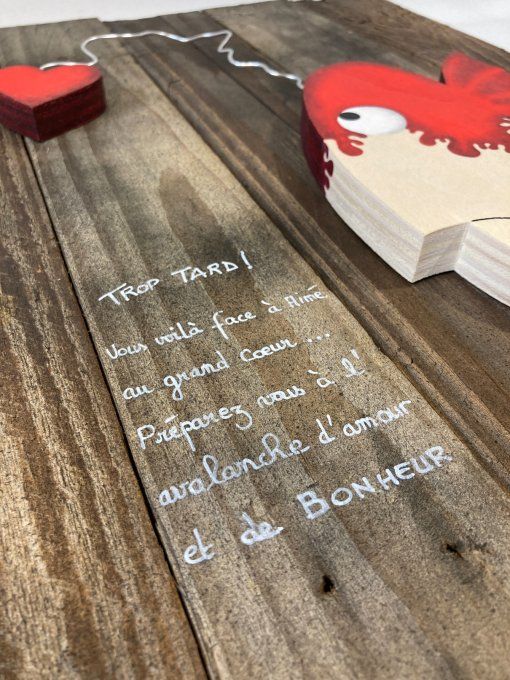 TROP TARD!
Vous voilà face à Aimé
au grand Coeur ...
Préparez vous à l'
avalanche d'amour
et de BONHEUR